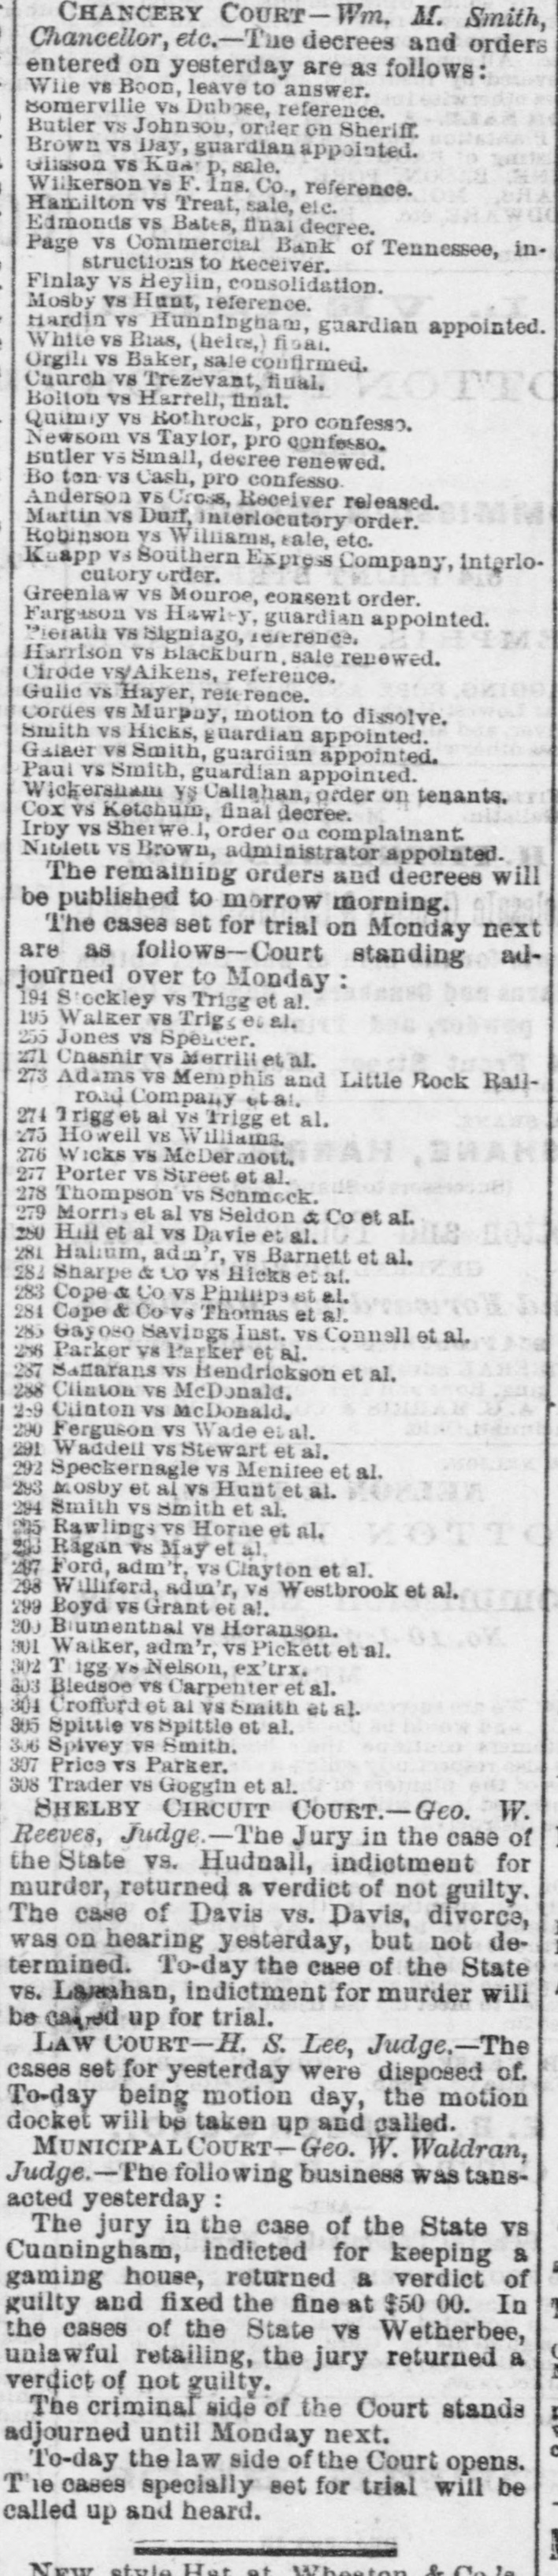 CHANCERY COURT—Wm. M. Smith,
Chancellor, etc.—The decrees and orders
entered on yesterday are as follows:
Wile vs Boon, leave to answer.
Somerville vs Dubose, reference.
Butler vs Johnson, order on Sheriff.
Brown vs Day, guardian appointed.
Glisson vs sale.
Wilkerson vs F. Ins. Co., reference.
Hamilton vs Treat, sale, etc.
Edmonds vs Bates, final decree.
Page vs Commercial Bank of Tennessee, in-
structions to Receiver.
Finlay vs Heylin, consolidation.
Mosby vs Hunt, reference.
Hardin vs Hunningham, guardian appointed.
White vs Bias, (heirs,) final.
Orgill vs Baker, sale confirmed.
Church vs Trezevant, final.
Bolton vs Harrell, final.
vs Rothrock, pro confesso.
Newsom vs Taylor, pro confesso.
Butler vs Small, decree renewed.
Bo ton vs Cash, pro confesso.
Anderson vs Cross, Receiver released.
Martin vs Duff, interlocutory order.
Robinson vs Williams, sale, etc.
Knapp vs Southern Express Company, interlo-
cutory order.
Greenlaw vs Monroe, consent order.
Farguson vs Hawley, guardian appointed.
vs Signiago, reference.
Harrison vs Blackburn, sale renewed.
Cirode vs Aikens, reference.
Gulic vs Hayer, reference.
Cordes vs Murphy, motion to dissolve.
Smith vs Hicks, guardian appointed.
vs Smith, guardian appointed.
Paul vs Smith, guardian appointed.
Wickersham vs Callahan, order on tenants.
Cox vs Ketchum, final decree.
Irby vs Sherwe l, order on complainant
Niblett vs Brown, administrator appointed.
The remaining orders and decrees will
be published to morrow morning.
The cases set for trial on Monday next
are as follows—Court standing ad-
journed over to Monday:
194 Stockley vs Trigg et al.
195 Walker vs Trigg et al.
255 Jones vs Spencer.
271 Chasnir vs Merrill et al.
273 Adams vs Memphis and Little Rock Rail-
road Company et al.
274 Trigg et al vs Trigg et al.
275 Howell vs Williams.
276 Wicks vs McDermott.
277 Porter vs Street et al.
278 Thompson vs Schmeck.
279 Morris et al vs Seldon & Co et al.
280 Hill et al vs Davie et al.
281 Halium, adm'r, vs Barnett et al.
282 Sharpe & Co vs Hicks et al.
283 Cope & Co vs Philips et al.
284 Cope & Co vs Thomas et al.
285 Gayoso Savings Inst. vs Connell et al.
286 Parker vs Parker et al.
287 Saffarans vs Hendrickson et al.
288 Clinton vs McDonald.
289 Clinton vs McDonald.
290 Ferguson vs Wade et al.
291 Waddell vs Stewart et al.
292 Speckernagle vs McNilee et al.
293 Mosby et al vs Hunt et al.
294 Smith vs Smith et al.
295 Rawlings vs Horne et al.
296 Ragan vs May et al.
297 Ford, adm'r, vs Clayton et al.
298 Williford, adm'r, vs Westbrook et al.
299 Boyd vs Grant et al.
300 Blumenthal vs Horanson.
301 Walker, adm'r, vs Pickett et al.
302 T igg vs Nelson, ex'trx.
303 Bledsoe vs Carpenter et al.
304 Crofford et al vs Smith et al.
305 Spittle vs Spittle et al.
306 Spivey vs Smith.
307 Price vs Parker.
308 Trader vs Goggin et al.
SHELBY CIRCUIT COURT.—Geo. W.
Reeves, Judge.—The Jury in the case of
the State vs. Hudnall, indictment for
murder, returned a verdict of not guilty.
The case of Davis vs. Davis, divorce,
was on hearing yesterday, but not de-
termined. To-day the case of the State
vs. Lanahan, indictment for murder will
be called up for trial.
LAW COURT—H. S. Lee, Judge.—The
cases set for yesterday were disposed of.
To-day being motion day, the motion
docket will be taken up and called.
MUNICIPAL COURT—Geo. W. Waldran,
Judge.—The following business was tans-
acted yesterday:
The jury in the case of the State vs
Cunningham, indicted for keeping a
gaming house, returned a verdict of
guilty and fixed the fine at $50 00. In
the cases of the State vs Wetherbee,
unlawful retailing, the jury returned a
verdict of not guilty.
The criminal side of the Court stands
adjourned until Monday next.
To-day the law side of the Court opens.
T e cases specially set for trial will be
called up and heard.
NEW style Hat at Wheaton & Co.'s